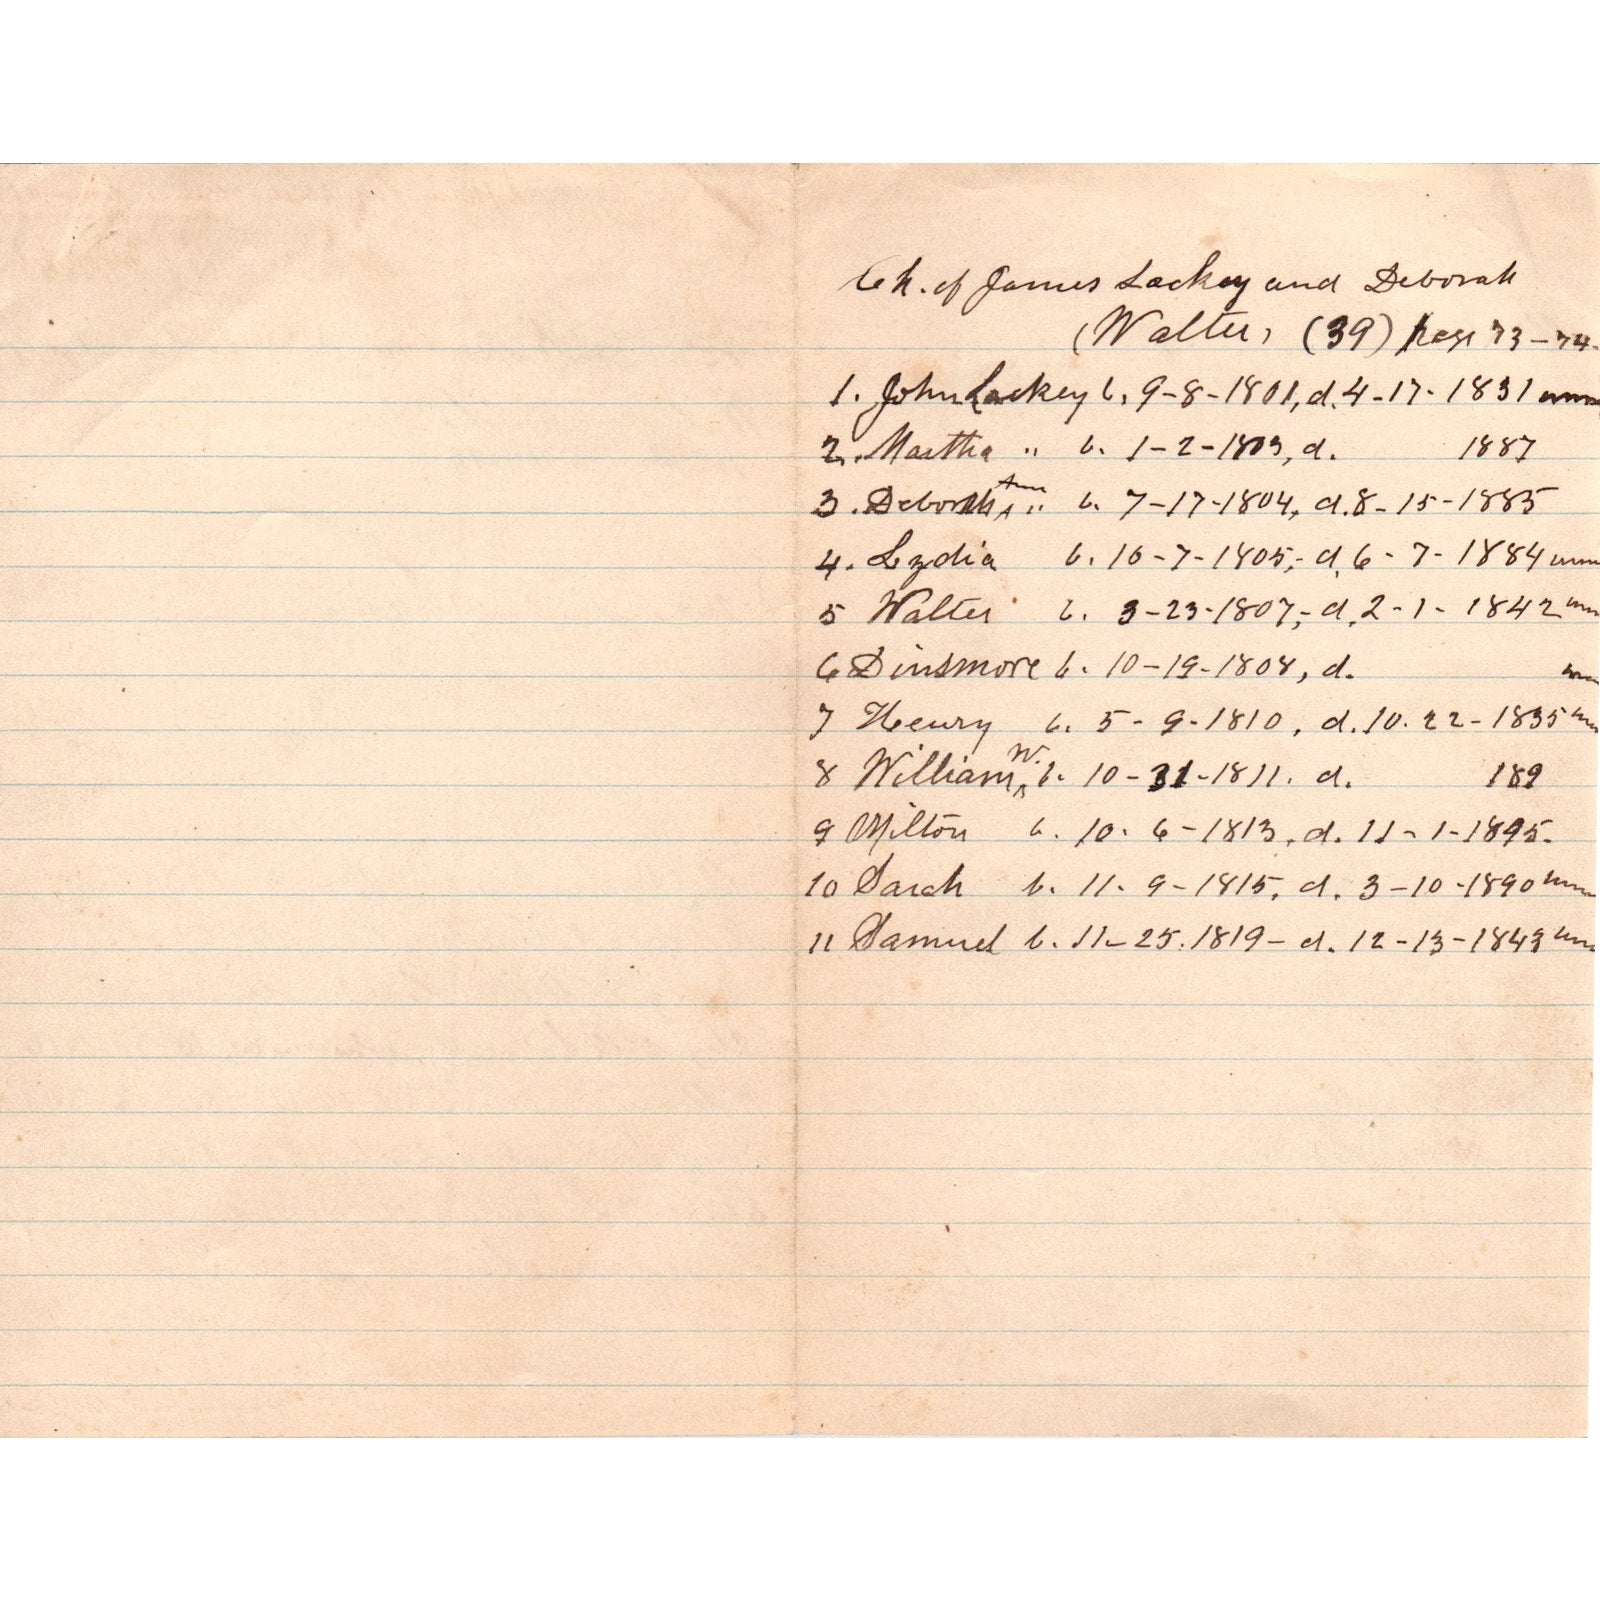 Ch. of James Lackey and Deborah
(Walter) (39) page 73-74.
1. John Lackey b. 9-8-1801, d. 4-17-1831 unm
2. Martha " b. 1-2-1803, d. 1887
3. Deborah Ann " b. 7-17-1804, d. 8-15-1885
4. Lydia b. 10-7-1805,- d. 6-7-1884 unm
5 Walter b. 3-23-1807,- d. 2-1-1842 unm
6 Dinsmore b. 10-19-1808, d. unm
7 Henry b. 5-9-1810, d. 10.22-1835 unm
8 William W. b. 10-31-1811. d. 189
9 Milton b. 10.6-1813, d. 11-1-1895.
10 Sarah b. 11.9-1815, d. 3-10-1890 unm
11 Samuel b. 11-25.1819- d. 12-13-1843 unm